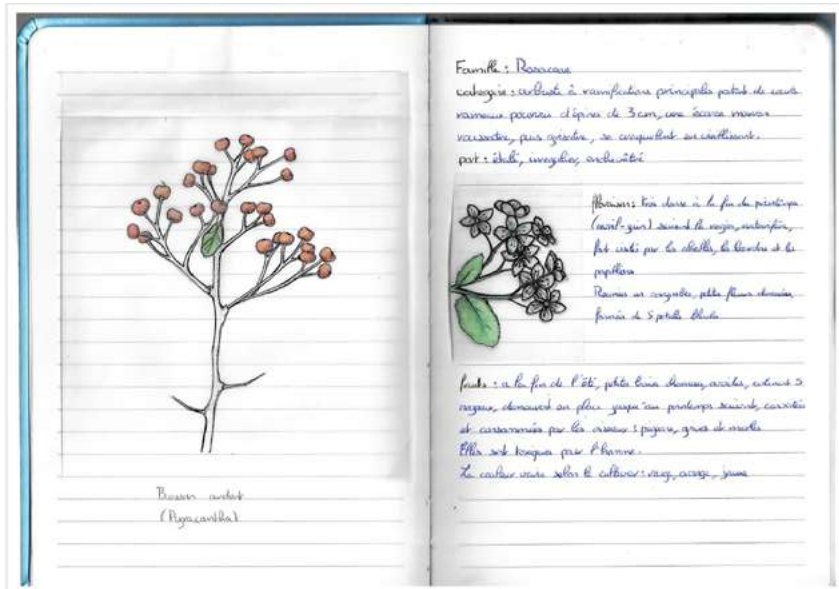 Buisson ardent
(Pyracantha)
Famille : Rosaceae
catégorie : arbuste à ramifications principales partant de courts
rameaux pourvus d'épines de 3 cm, une écorce marron
roussatre, puis grisatre, se craquellant en vieillissant.
port : étalé, irregulier, enchevêtré
floraison : très dense à la fin du printemps
(avril-juin) suivant la region, nectarifère,
fort visité par les abeilles, les bourdons et les
papillons
Reunies en corymbes, petites fleurs
formés de 5 petales blanches
fruits : a la fin de l'été, petites baies charnues, contenant 5
noyaux, demeurent en place jusqu'au printemps suivant, convoitées
et consommées par les oiseaux : pigeons, grives et merles
Elles sont toxiques pour l'homme.
La couleur varie selon le cultivar : rouge, orange, jaune